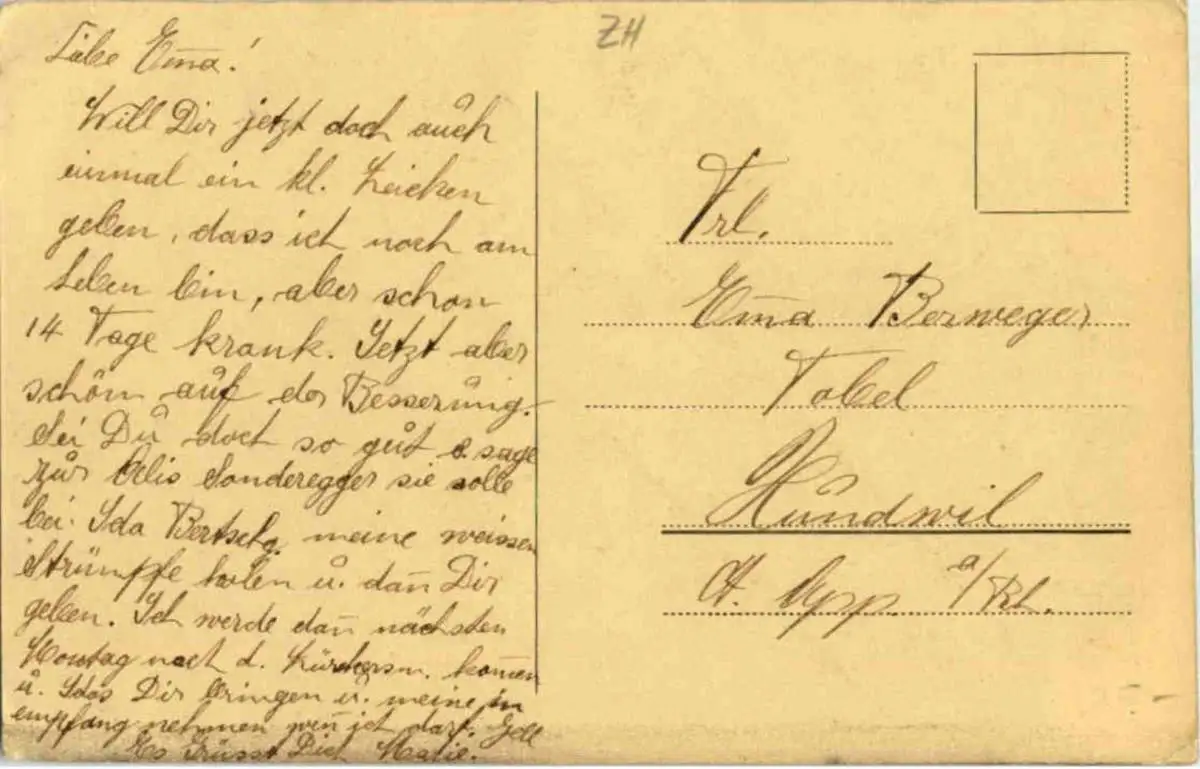 ZH
Liebe Em̄a!
Will Dir jetzt doch auch
einmal ein kl. Zeichen
geben, dass ich noch am
Leben bin, aber schon
14 Tage krank. Jetzt aber
schön auf der Besserung.
Sei Du doch so gut u. sage
zur Sonderegger sie solle
bei Ida meine weissen
Strümpfe holen u. dan̄ Dir
geben. Ich werde dan̄ nächsten
Montag nach d. kom̄en
u. Idas Dir bringen u. meine in
empfang nehmen wen̄ ich darf. Gell
Es Grüsst Dich
Frl.
Em̄a Berweger
Tobel
Hundwil
Kt. App. a/Rh.